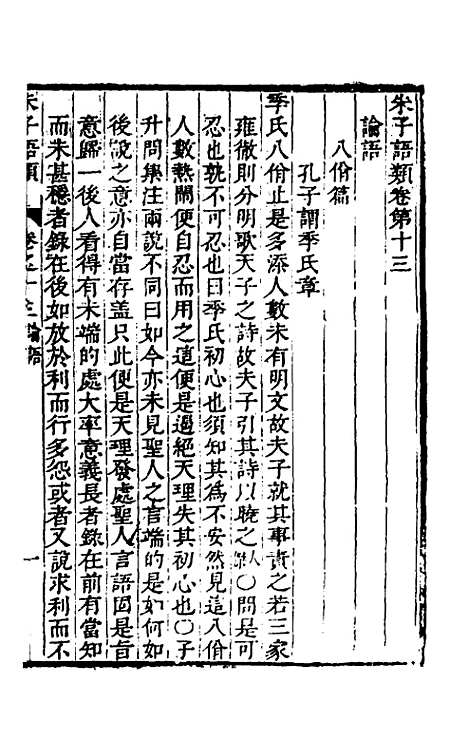 朱子語類卷第十三
論語
八佾篇
孔子謂季氏章
季氏八佾止是多添人數未有明文故夫子就其事責之若三家
雍徹則分明歌天子之詩故夫子引其詩以曉之 ○問是可
忍也孰不可忍也曰季氏初心也須知其為不安然見這八佾
人數熱鬧便自忍而用之這便是遏絕天理失其初心也○子
升問集注兩說不同曰如今亦未見聖人之言端的是如何如
後說之意亦自當存蓋只此便是天理發處聖人言語固是旨
意歸一後人看得有未端的處大率意義長者錄在前有當知
而未甚穩者錄在後如放於利而行多怨或者又說求利而不
朱子語類
論語
一